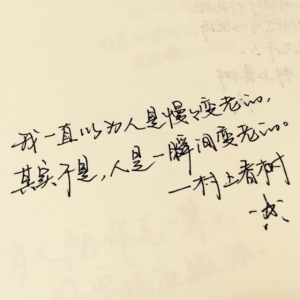 我一直以为人是慢慢变老的,
其实不是,人是一瞬间变老的。
—村上春树